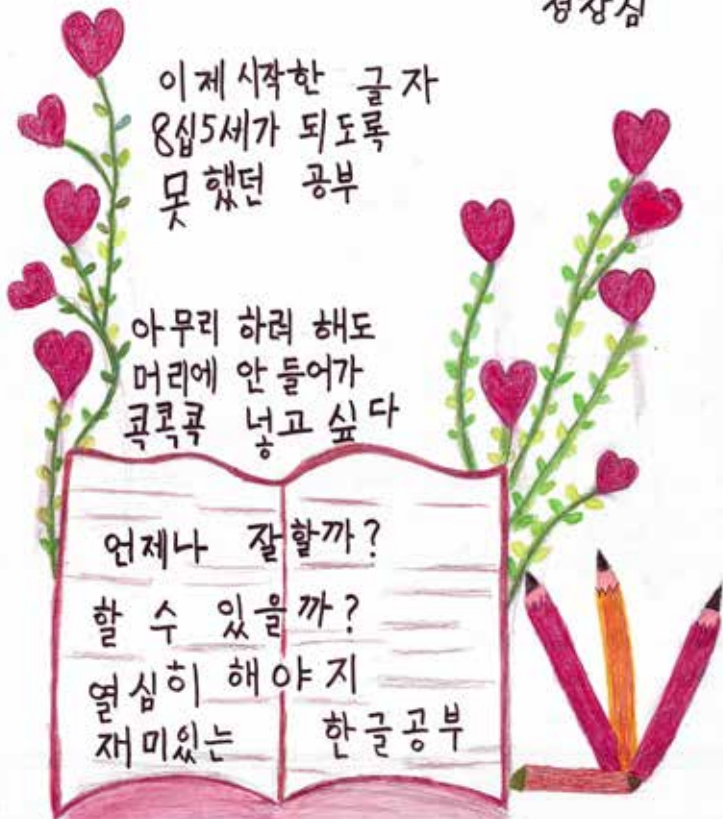 정상심
이제 시작한 글자
8십5세가 되도록
못 했던 공부
아무리 하려 해도
머리에 안 들어가
콕콕콕 넣고 싶다
언제나 잘할까?
할 수 있을까?
열심히 해야지
재미있는 한글공부